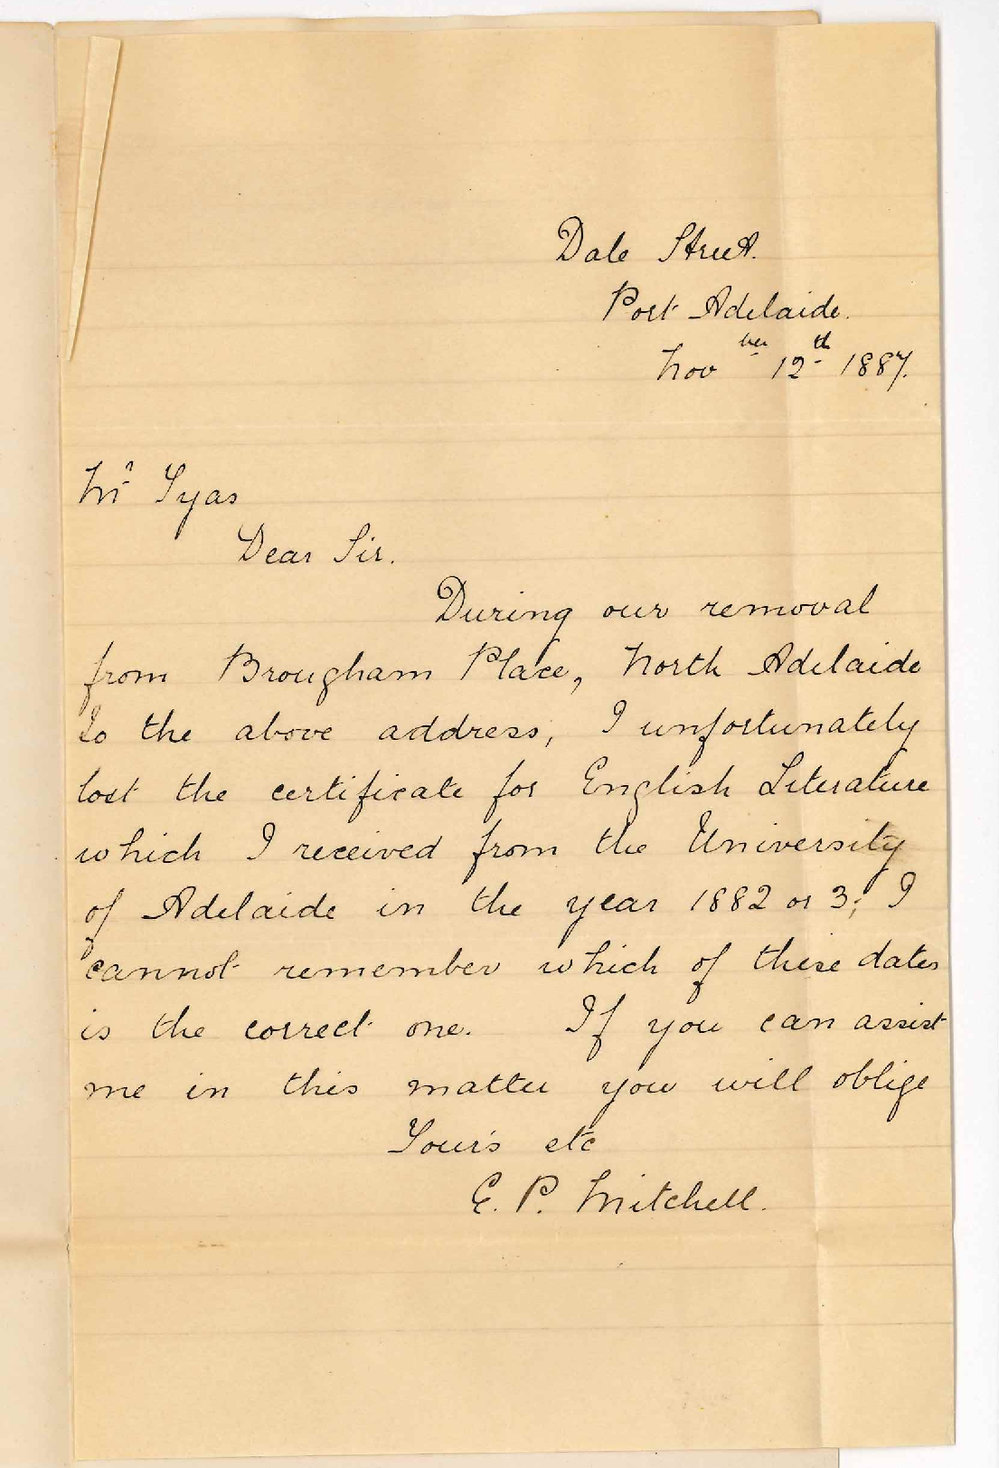 Dale Street.
Port Adelaide.
Nov ber 12th 1887.
Mr Tyas
Dear Sir.
During our removal
from Brougham Place, North Adelaide
to the above address, I unfortunately
lost the certificate for English Literature
which I received from the University
of Adelaide in the year 1882 or 3; I
cannot remember which of these dates
is the correct one. If you can assist
me in this matter you will oblige
Your's etc
E. P. Mitchell.